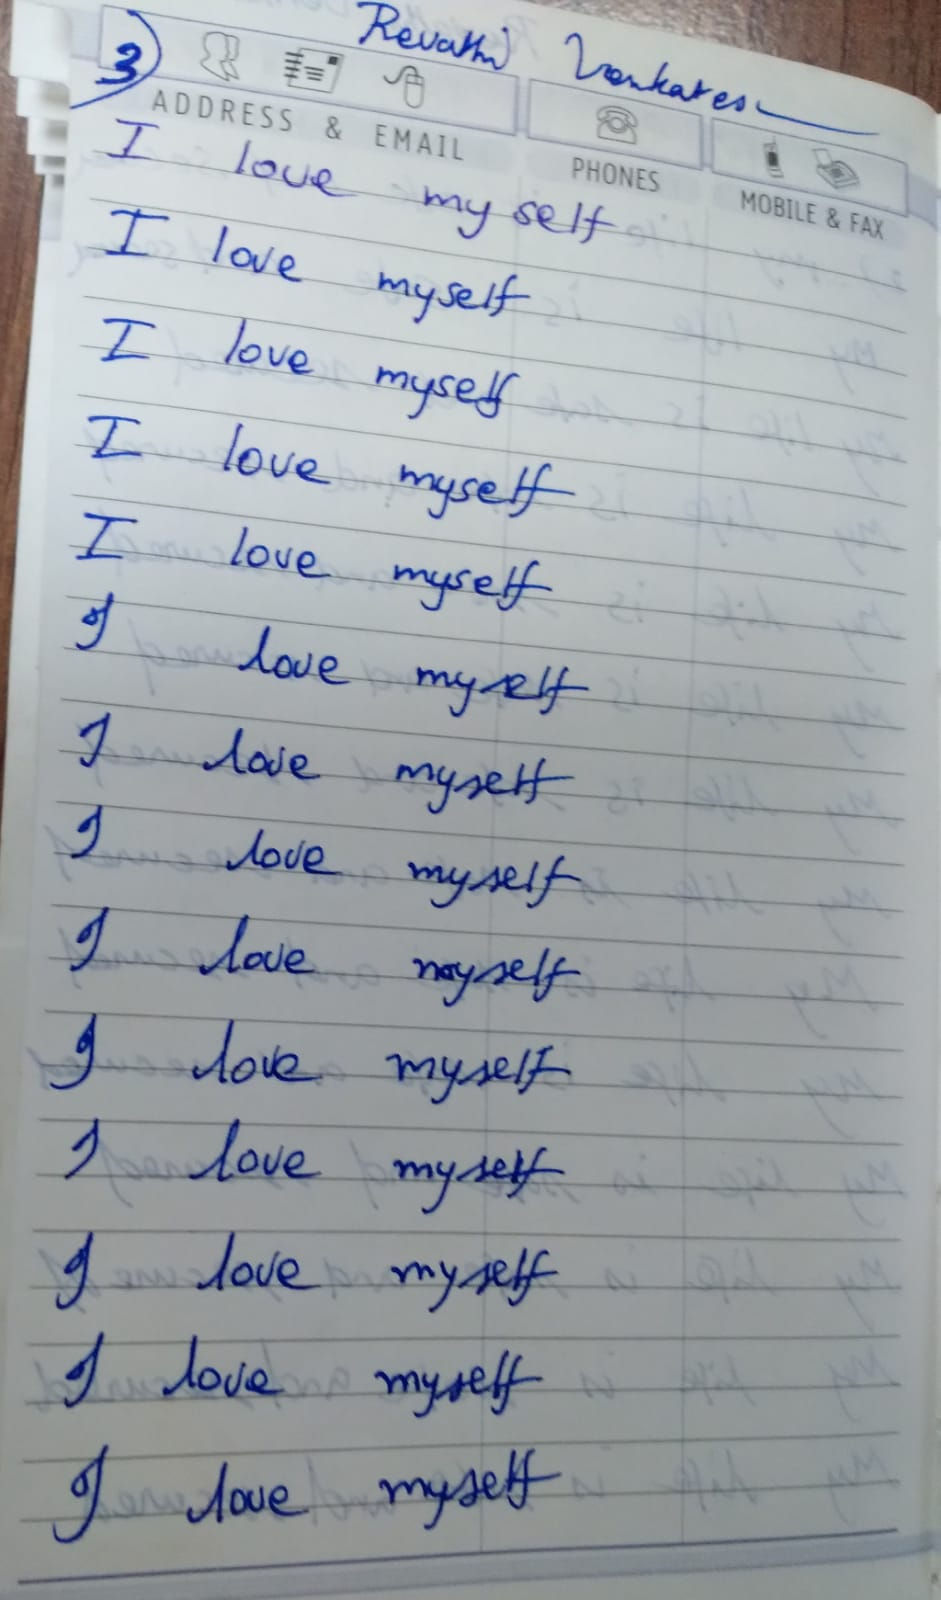 Revathi Venkates
3
ADDRESS & EMAIL
PHONES
MOBILE & FAX
I love my self
I love myself
I love myself
I love myself
I love myself
I love myself
I love myself
I love myself
I love myself
I love myself
I love myself
I love myself
I love myself
I love myself